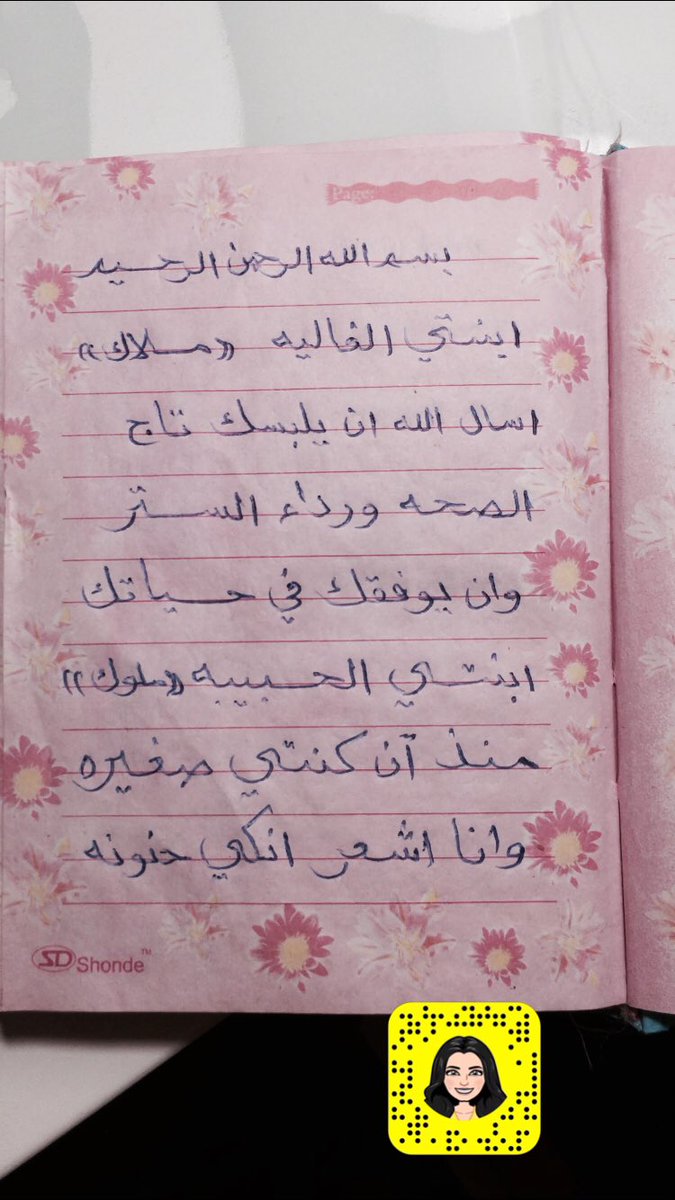 Page:
بسم الله الرحمن الرحيم
ابنتي الغاليه «ملاك»
اسال الله ان يلبسك تاج
الصحه ورداء الستر
وان يوفقك في حياتك
ابنتي الحبيبه «ملوك»
منذ آن كنتي صغيره
وانا اشعر انكي حنونه
SD Shonde™